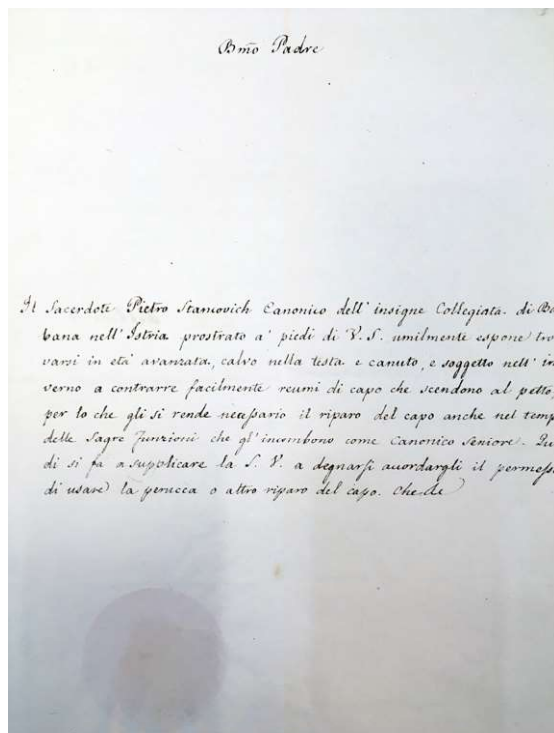 Bmõ Padre
Il Sacerdote Pietro Stancovich Canonico dell' insigne Collegiata di Ba
bana nell' Istria prostrato a' piedi di V. S. umilmente espone tro
varsi in età avanzata, calvo nella testa e canuto, e soggetto nell' in
verno a contrarre facilmente reumi di capo che scendono al petto,
per lo che gli si rende necessario il riparo del capo anche nel temp
delle Sagre Funzioni che gl' incombono come Canonico Seniore. Qu
di si fa a supplicare la S. V. a degnarsi accordargli il permess
di usare la perucca o altro riparo del capo. Che de